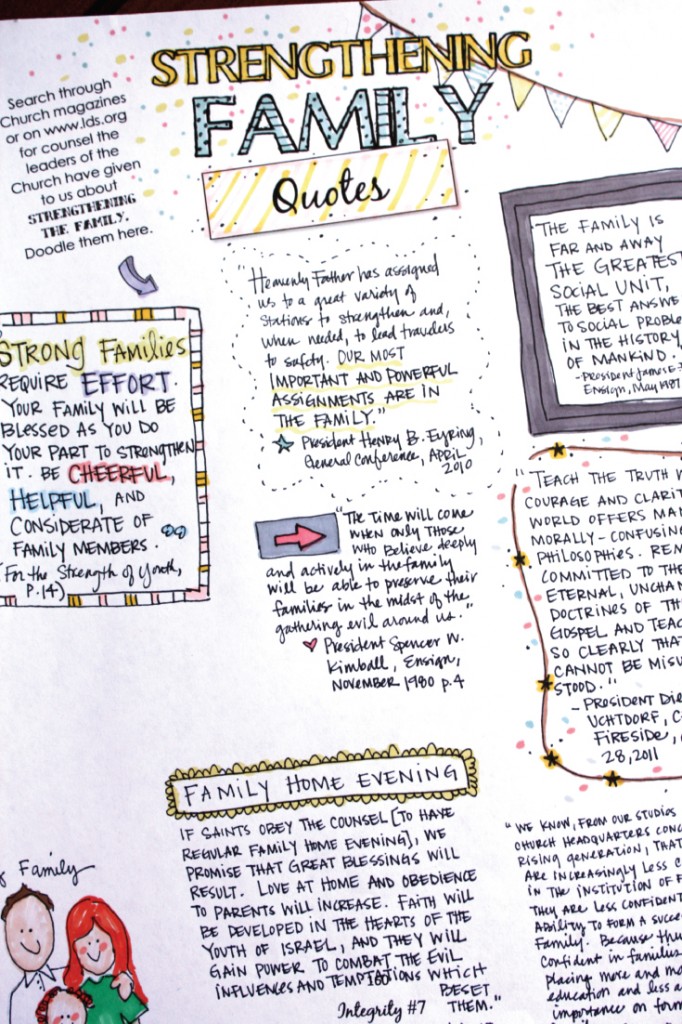 STRENGTHENING
FAMILY
Quotes
Search through
Church magazines
or on www.lds.org
for counsel the
leaders of the
Church have given
to us about
STRENGTHENING
THE FAMILY.
Doodle them here.
STRONG FAMILIES
REQUIRE EFFORT.
YOUR FAMILY WILL BE
BLESSED AS YOU DO
YOUR PART TO STRENGTHEN
IT. BE CHEERFUL,
HELPFUL, AND
CONSIDERATE OF
FAMILY MEMBERS.
(For the Strength of Youth,
P.14)
"Heavenly Father has assigned
us to a great variety of
stations to strengthen and,
when needed, to lead travelers
to safety. OUR MOST
IMPORTANT AND POWERFUL
ASSIGNMENTS ARE IN
THE FAMILY."
President Henry B. Eyring,
General Conference, APRIL
2010
"The time will come
WHEN ONLY THOSE
WHO believe deeply
and actively in the family
will be able to preserve their
families in the midst of the
gathering evil around us."
President Spencer W.
Kimball, Ensign,
November 1980 p.4
THE FAMILY IS
FAR AND AWAY
THE GREATEST
SOCIAL UNIT,
THE BEST ANSWE
TO SOCIAL PROBLE
IN THE HISTORY
OF MANKIND.
-President James E.
Ensign, May 1987
"TEACH THE TRUTH W
COURAGE AND CLARIT
WORLD OFFERS MAN
MORALLY-CONFUSING
PHILOSOPHIES. REM
COMMITTED TO THE
ETERNAL, UNCHAN
DOCTRINES OF TH
GOSPEL AND TEAC
SO CLEARLY THAT
CANNOT BE MISU
STOOD."
-PRESIDENT DIE
UCHTDORF, C
FIRESIDE,
28, 2011
FAMILY HOME EVENING
IF SAINTS OBEY THE COUNSEL [TO HAVE
REGULAR FAMILY HOME EVENING], WE
PROMISE THAT GREAT BLESSINGS WILL
RESULT. LOVE AT HOME AND OBEDIENCE
TO PARENTS WILL INCREASE. FAITH WILL
BE DEVELOPED IN THE HEARTS OF THE
YOUTH OF ISRAEL, AND THEY WILL
GAIN POWER TO COMBAT THE EVIL
INFLUENCES AND TEMPTATIONS WHICH
BESET
THEM."
"WE KNOW, FROM OUR STUDIOS
CHURCH HEADQUARTERS CONC
RISING GENERATION, THAT
ARE INCREASINGLY LESS C
IN THE INSTITUTION OF F
THEY ARE LESS CONFIDENT
Ability TO FORM A SUCCE
Family. Because they
confident in families
placing more and mo
education and less a
importance on form
Family
160
Integrity #7